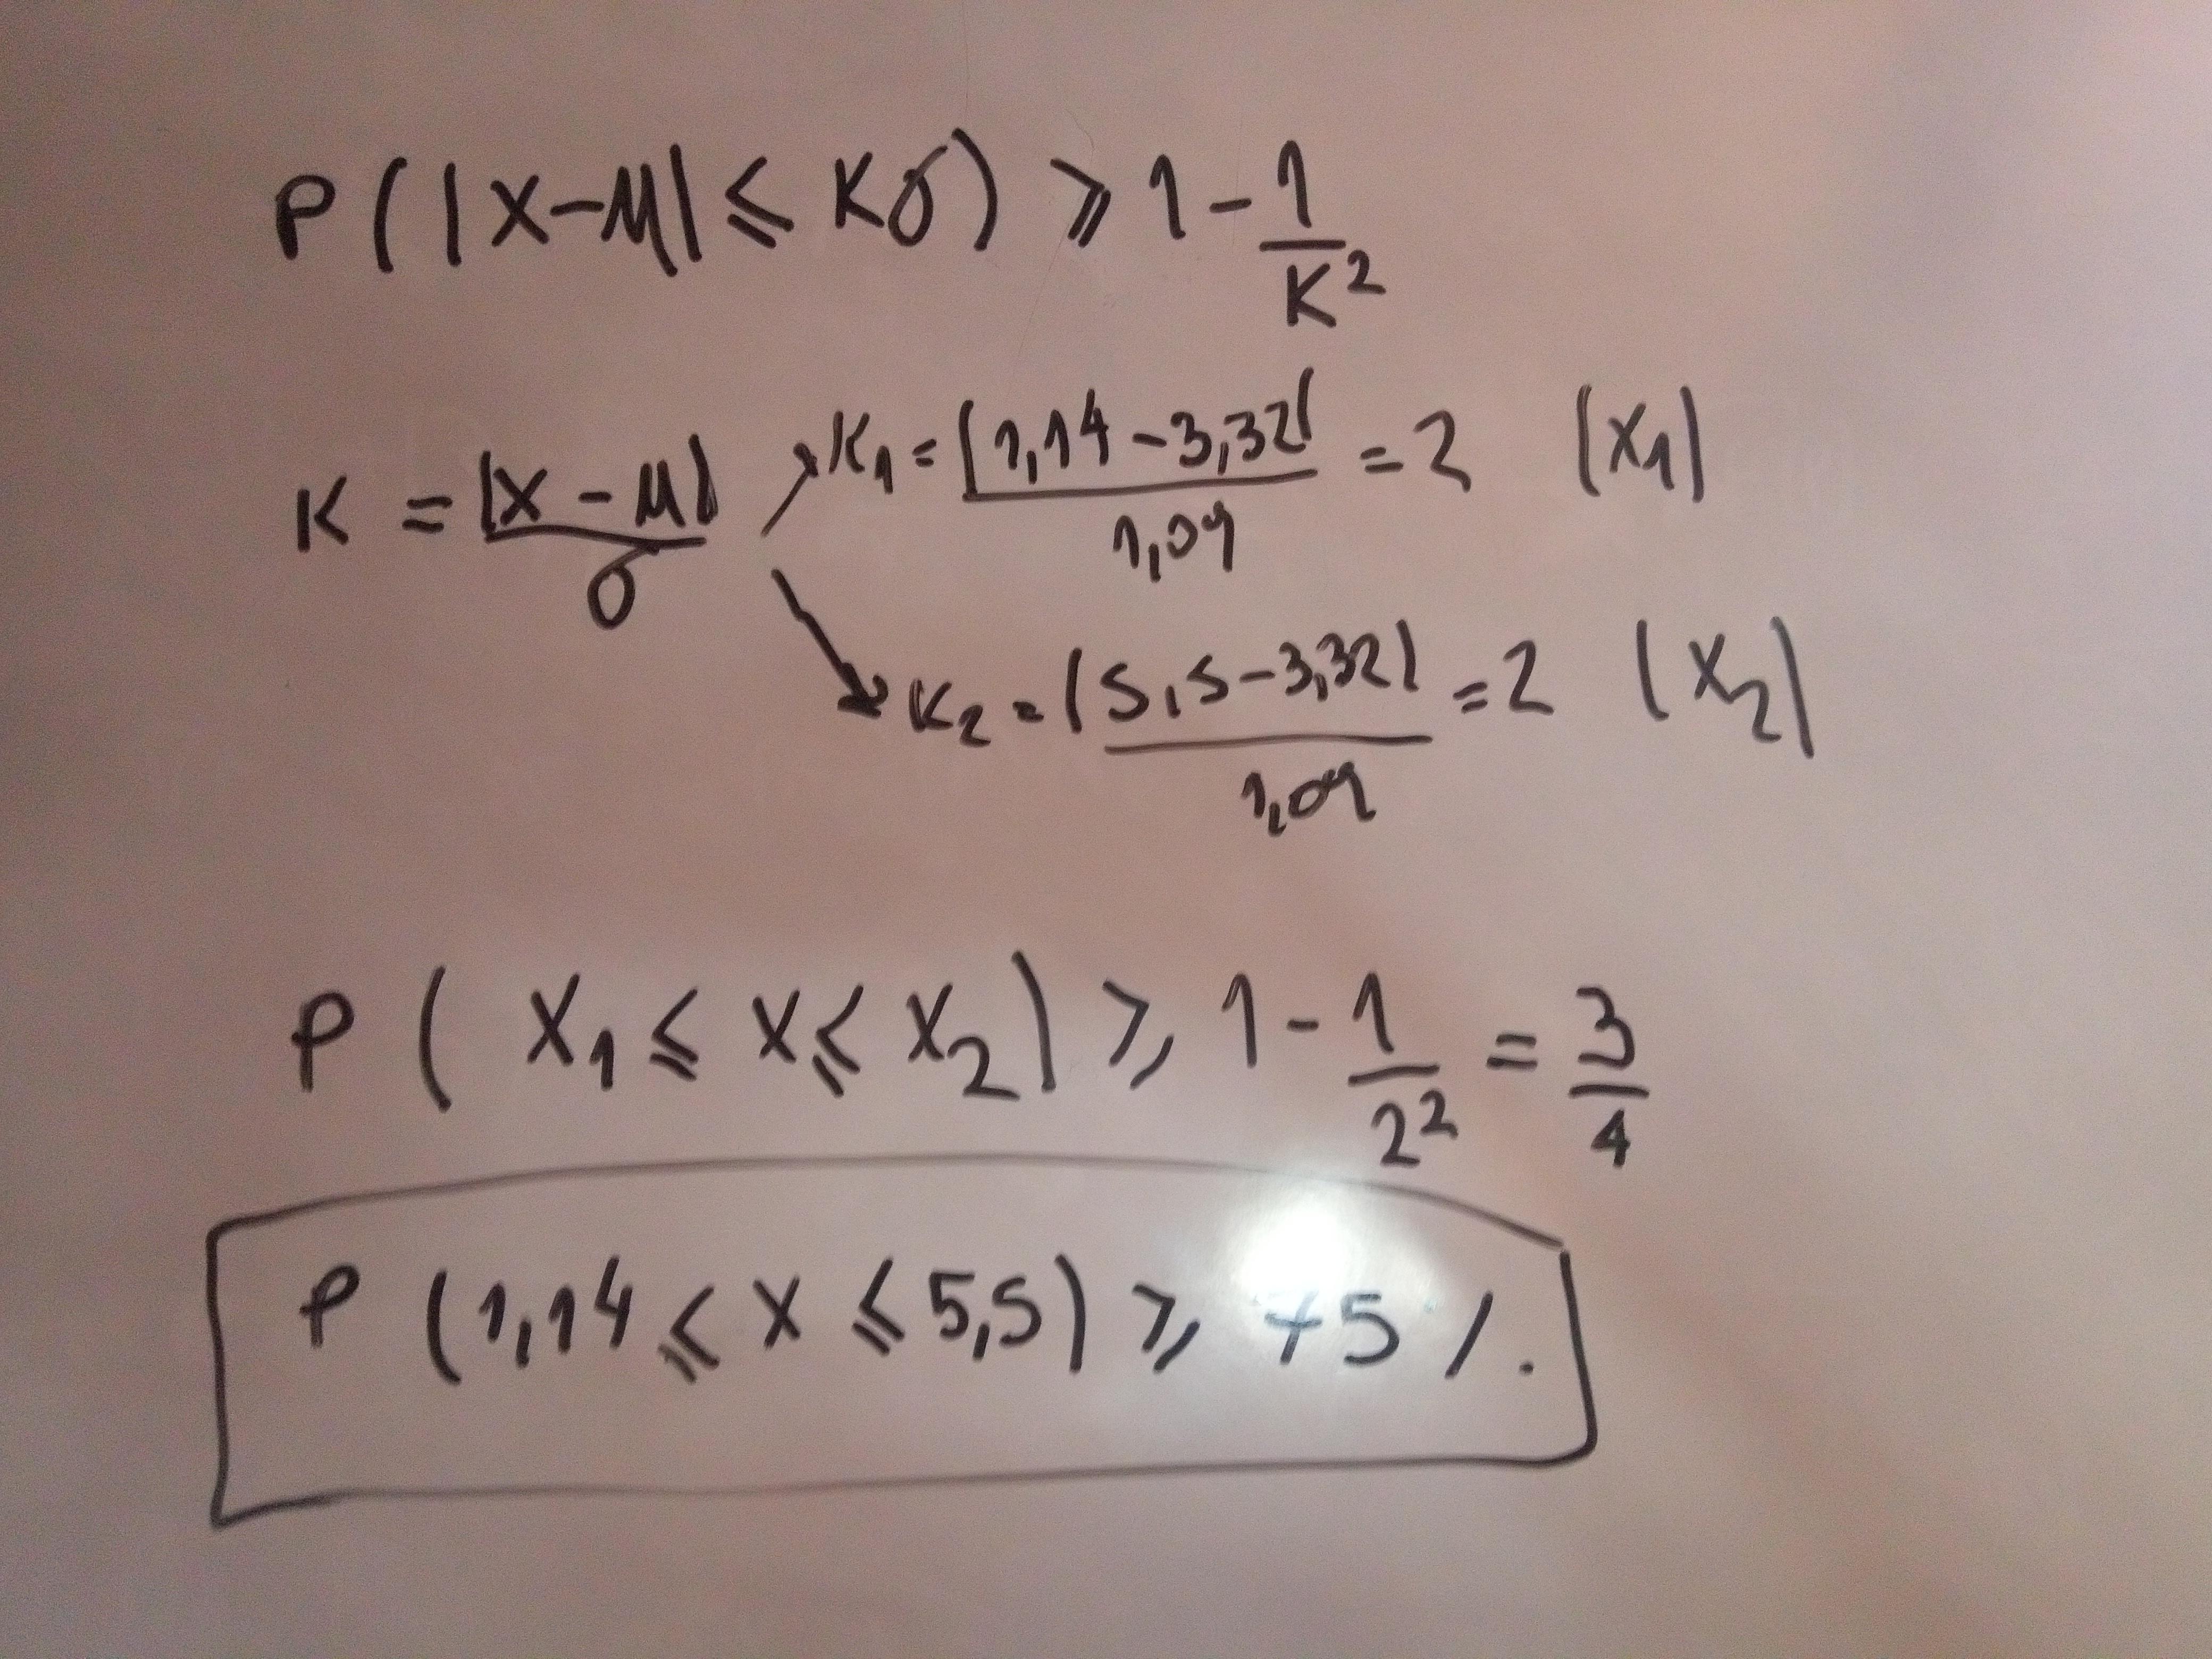 P(|X-μ| ≤ Kσ) ≥ 1 - 1/K²
K = |X-μ|/σ
K₁ = |1,14-3,32|/1,09 = 2 (X₁)
K₂ = |5,5-3,32|/1,09 = 2 (X₂)
P( X₁ ≤ X ≤ X₂) ≥ 1 - 1/2² = 3/4
P(1,14 ≤ X ≤ 5,5) ≥ 75%.